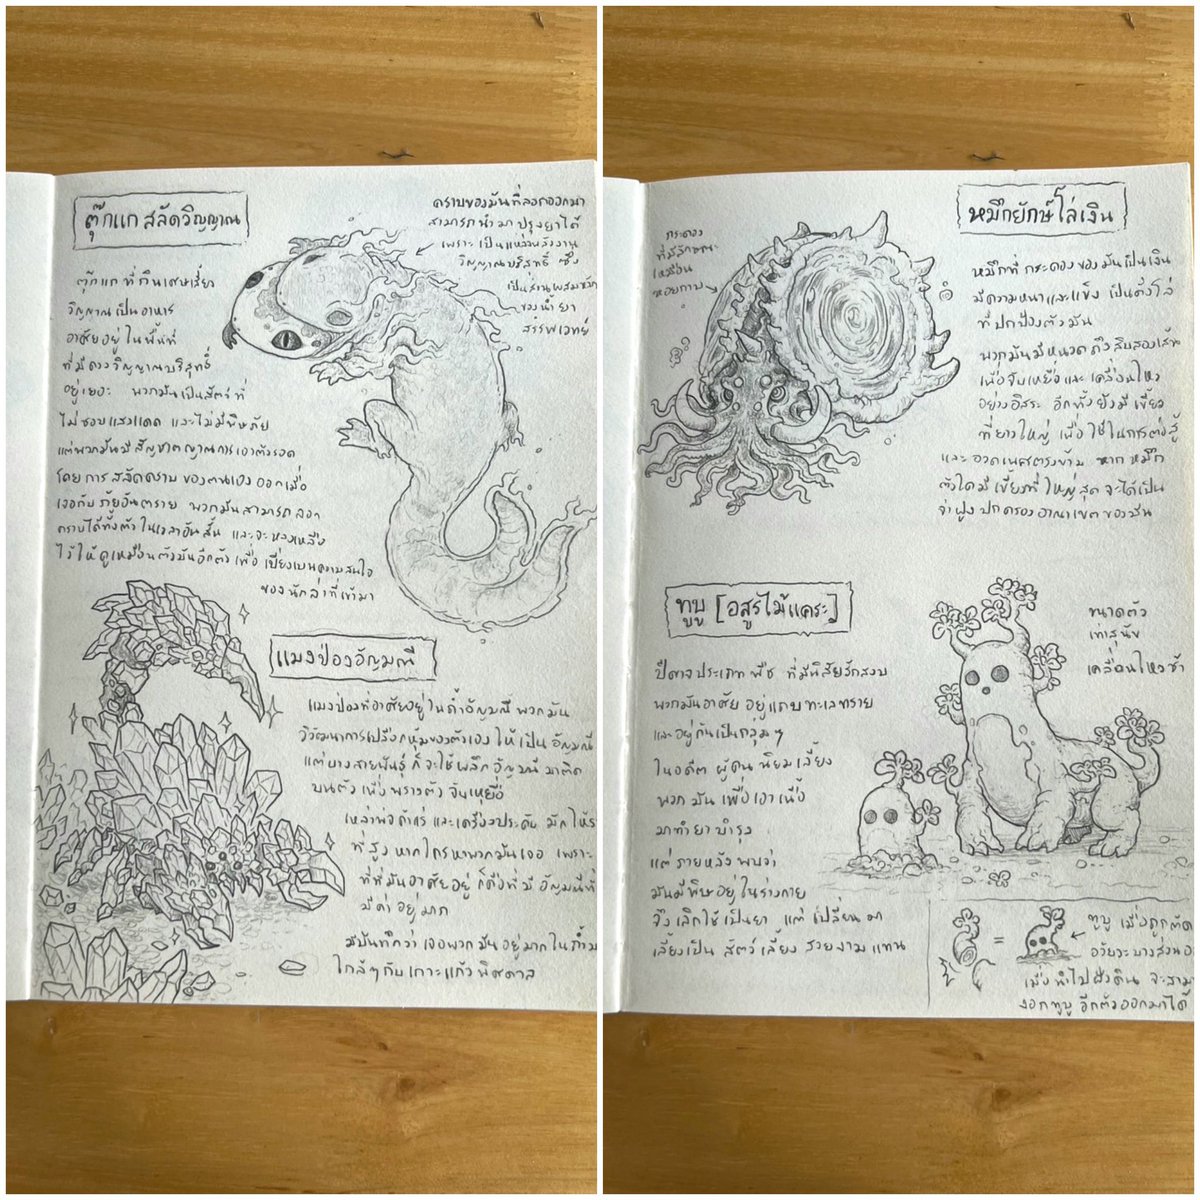 ตุ๊กแกสลัดวิญญาณ
คราบของมันที่ลอกออกมา
สามารถนำมาปรุงยาได้
เพราะเป็นแหล่งพลังงาน
วิญญาณบริสุทธิ์ ซึ่ง
เป็นส่วนผสมชั้น
ของน้ำยา
สรรพเวทย์
ตุ๊กแกที่กินเศษเสี้ยว
วิญญาณเป็นอาหาร
อาศัยอยู่ในพื้นที่
ที่มีดวงวิญญาณบริสุทธิ์
อยู่เยอะ พวกมันเป็นสัตว์ที่
ไม่ชอบแสงแดด และไม่มีพิษภัย
แต่พวกมันมีสัญชาตญาณการเอาตัวรอด
โดยการสลัดคราบของตนเองออกเมื่อ
เจอกับภัยอันตราย พวกมันสามารถลอก
คราบได้ทั้งตัวในเวลาอันสั้น และจะหลงเหลือ
ไว้ให้ดูเหมือนตัวมันอีกตัวเพื่อเบี่ยงเบนความสนใจ
ของนักล่าที่เข้ามา
แมงป่องอัญมณี
แมงป่องที่อาศัยอยู่ในถ้ำอัญมณี พวกมัน
วิวัฒนาการเปลือกหุ้มของตัวเองให้เป็นอัญมณี
แต่บางสายพันธุ์ก็จะใช้ผลึกอัญมณีมาติด
บนตัวเพื่อพรางตัวจับเหยื่อ
เหล่าพ่อค้าแร่และเครื่องประดับ มักให้ร
ที่สูง หากใครหาพวกมันเจอ เพราะ
ที่ที่มันอาศัยอยู่ ก็คือที่มีอัญมณีที่
มีค่าอยู่มาก
มีบันทึกว่าเจอพวกมันอยู่มากในถ้ำ
ใกล้ๆกับเกาะแก้วพิศดาล
หมึกยักษ์โล่เงิน
กระดอง
ที่มีลักษณะ
เหมือน
หอยกาบ
หมึกที่กระดองของมันเป็นเงิน
มีความหนาและแข็ง เป็นดั่งโล่
ที่ปกป้องตัวมัน
พวกมันมีหนวดถึงสิบสองเส้น
เพื่อจับเหยื่อและเคลื่อนไหว
อย่างอิสระ อีกทั้งยังมีเขี้ยว
ที่ยาวใหญ่ เพื่อใช้ในการต่อสู้
และอวดเพศตรงข้าม หากหมึก
ตัวใดมีเขี้ยวที่ใหญ่สุด จะได้เป็น
จ่าฝูงปกครองอาณาเขตของมัน
ทูบู [อสูรไม้แคระ]
ขนาดตัว
เท่าสุนัข
เคลื่อนไหวช้า
ปีศาจประเภทพืช ที่มีนิสัยรักสงบ
พวกมันอาศัยอยู่แถบทะเลทราย
และอยู่กันเป็นกลุ่มๆ
ในอดีต ผู้คนนิยมเลี้ยง
พวกมันเพื่อเอาเนื้อ
มาทำยาบำรุง
แต่ภายหลังพบว่า
มันมีพิษอยู่ในร่างกาย
จึงเลิกใช้เป็นยา แต่เปลี่ยนมา
เลี้ยงเป็นสัตว์เลี้ยงสวยงามแทน
= ทูบู เมื่อถูกตัด
อวัยวะบางส่วนอ
เมื่อนำไปฝังดิน จะสาม
งอกทูบูอีกตัวออกมาได้